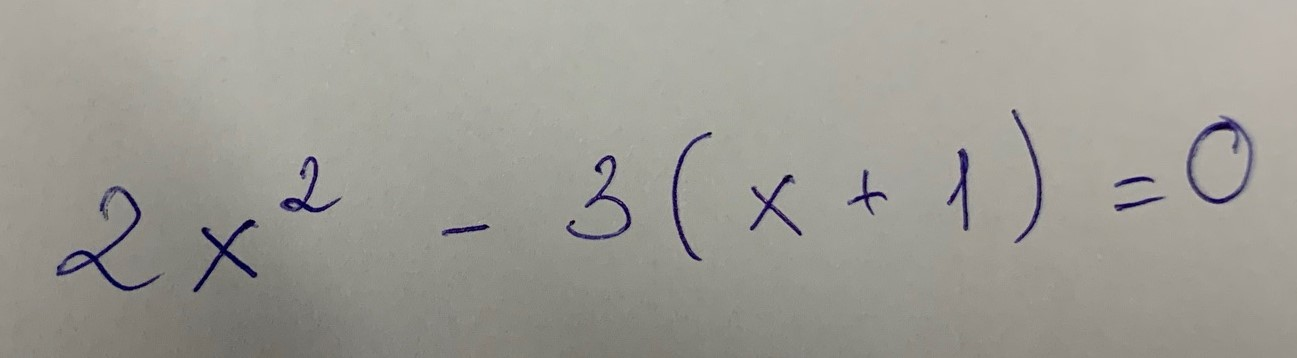 2x² - 3(x + 1) = 0